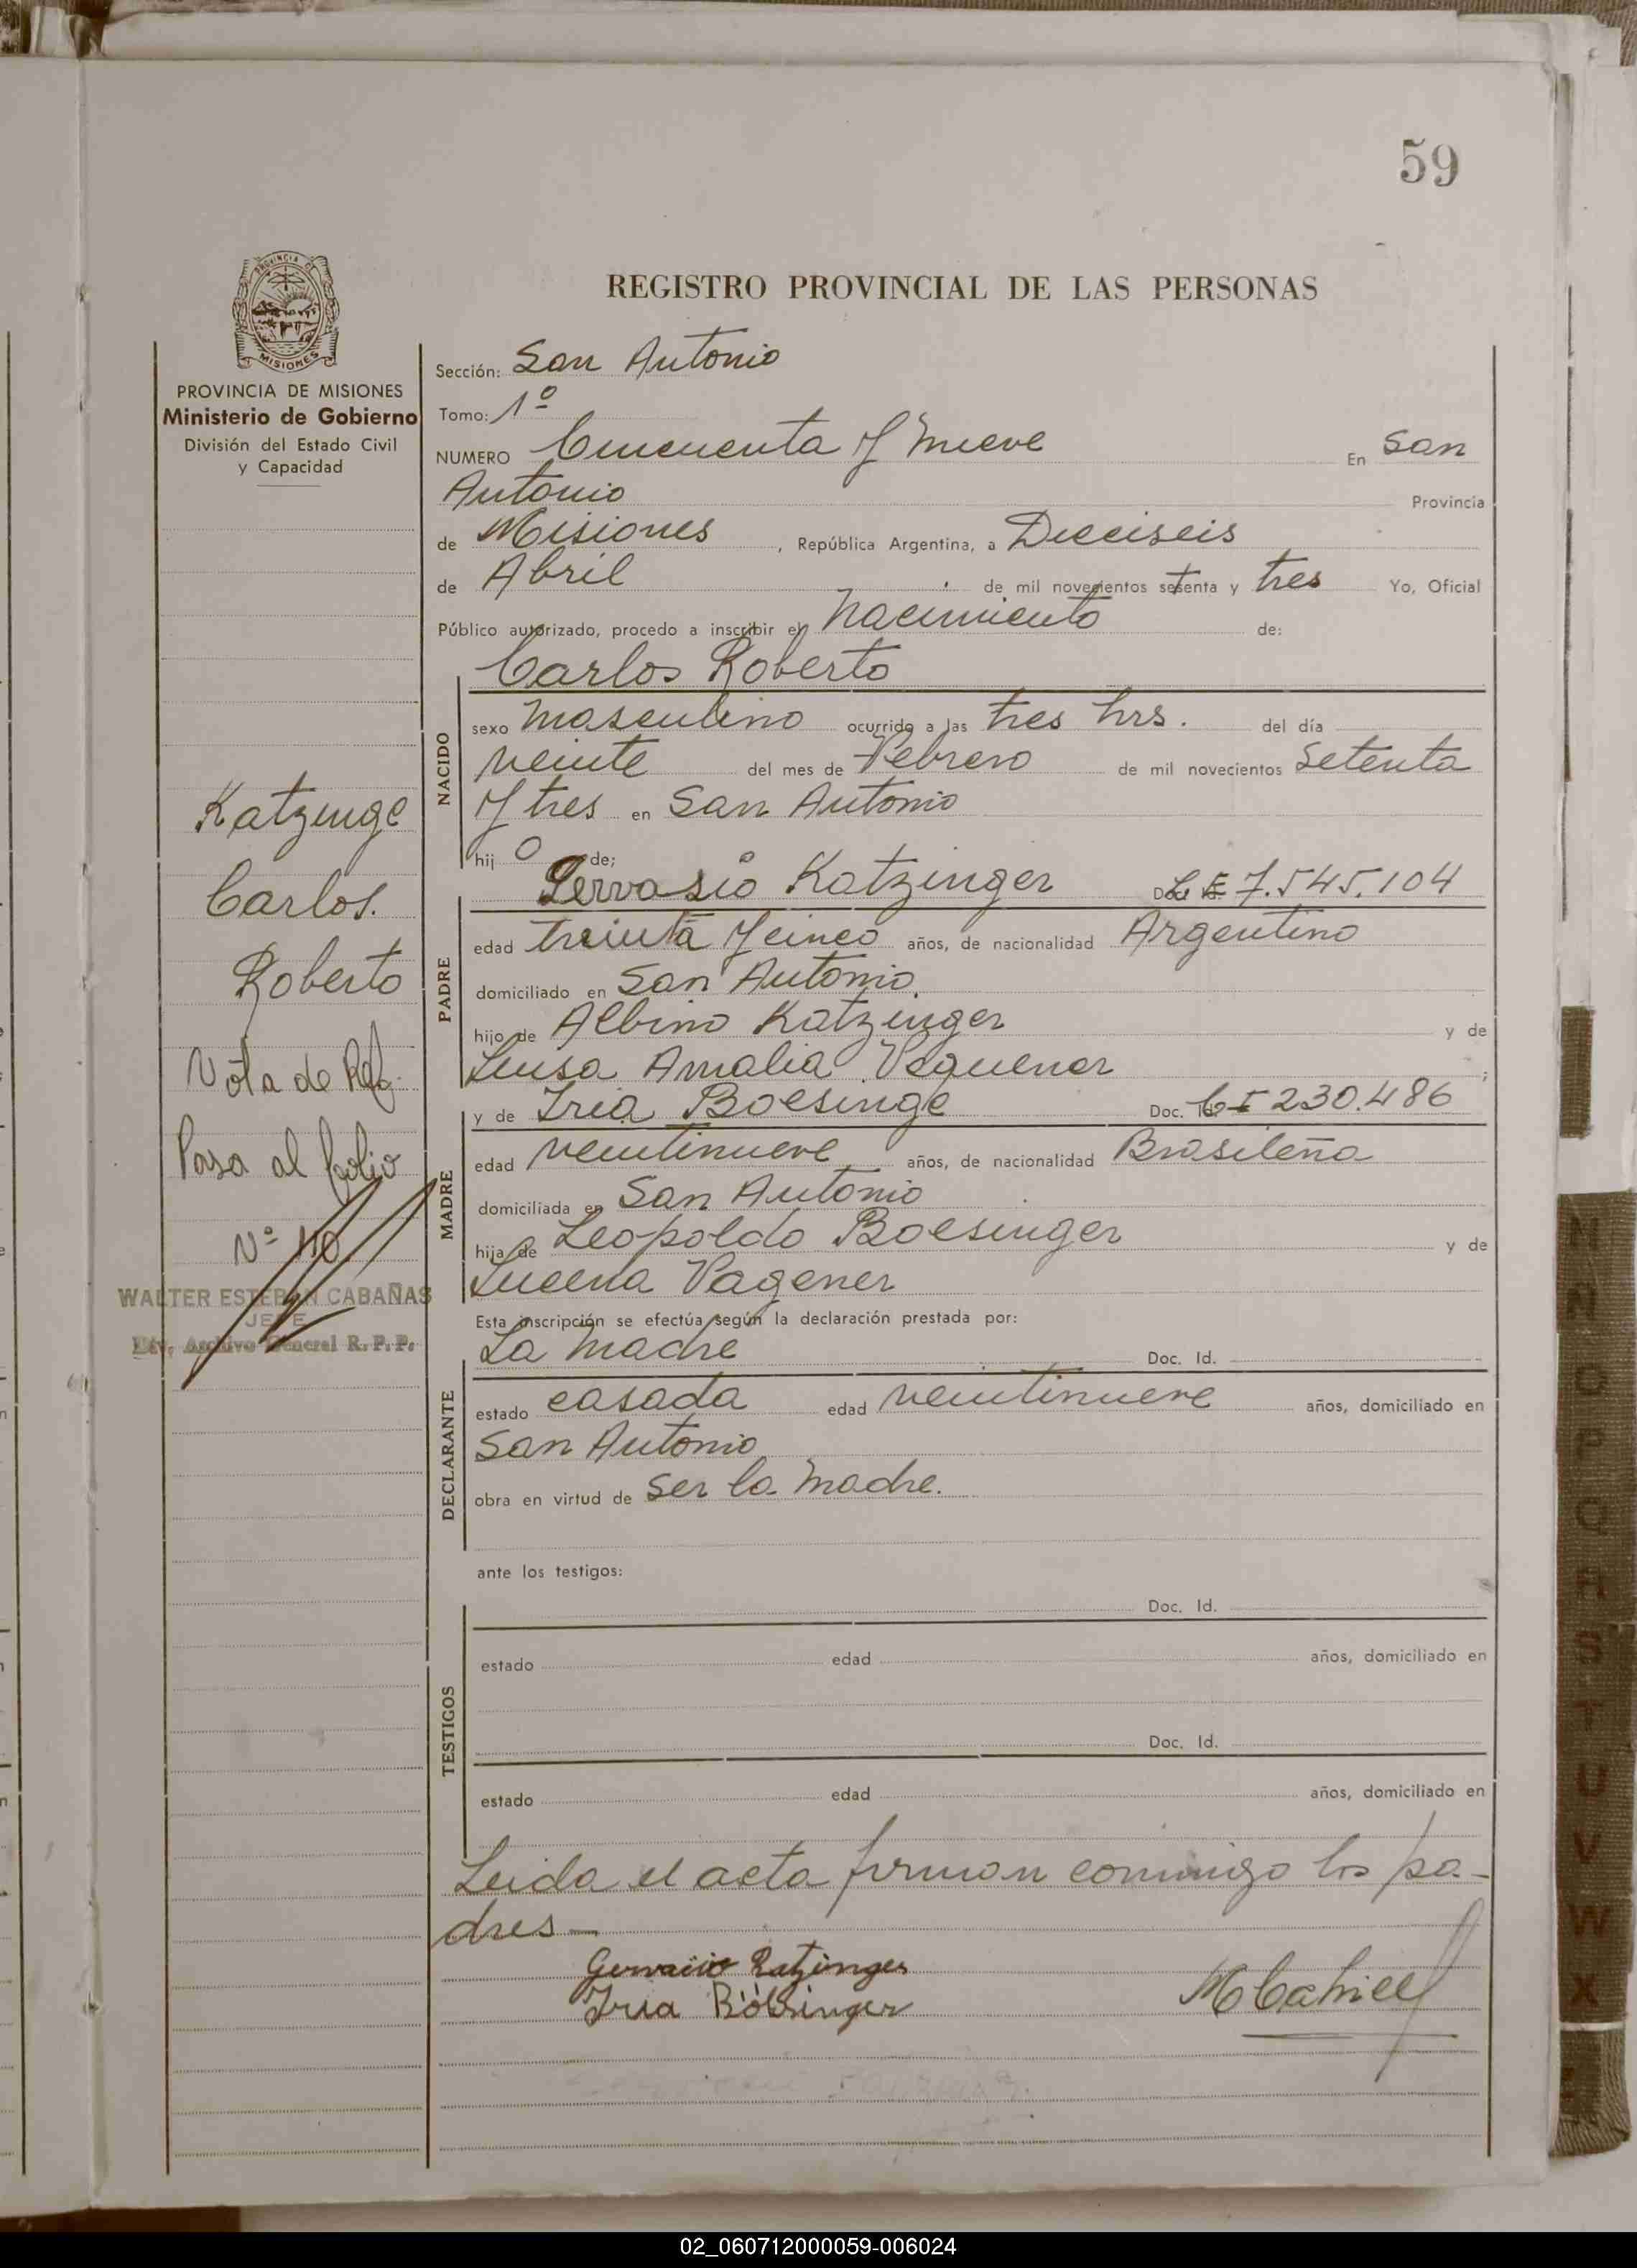 59
PROVINCIA DE
MISIONES
REGISTRO PROVINCIAL DE LAS PERSONAS
PROVINCIA DE MISIONES
Ministerio de Gobierno
División del Estado Civil
y Capacidad
Katzinge
Carlos.
Roberto
Nota de Ref.
Pasa al folio
Nº 110
WALTER ESTEBAN CABAÑAS
JEFE
Div. Archivo General R. P. P.
Sección: San Antonio
Tomo: 1º
NUMERO Cincuenta y nueve En San
Antonio Provincia
de Misiones, República Argentina, a Dieciseis
de Abril de mil novecientos setenta y tres Yo, Oficial
Público autorizado, procedo a inscribir el Nacimiento de:
Carlos Roberto
NACIDO
sexo masculino ocurrido a las tres hrs. del día
veinte del mes de Febrero de mil novecientos Setenta
y tres en San Antonio
hij o de;
Gervasio Katzinger Doc. Id. L E 7.545.104
PADRE
edad treinta y cinco años, de nacionalidad Argentino
domiciliado en San Antonio.
hijo de Albino Katzinger y de
Luisa Amalia Veguener;
y de Iria Boesinge Doc. Id. C I 230.486
MADRE
edad veintinueve años, de nacionalidad Brasileña
domiciliada en San Antonio
hija de Leopoldo Boesinger y de
Lucena Vagener
Esta inscripción se efectúa según la declaración prestada por:
La madre Doc. Id.
DECLARANTE
estado casada edad veintinueve años, domiciliado en
San Antonio
obra en virtud de ser la madre.
ante los testigos:
Doc. Id.
TESTIGOS
estado edad años, domiciliado en
Doc. Id.
estado edad años, domiciliado en
Leida el acta firman conmigo los pa-
dres—
Gervasio Katzinger
Iria Bölsinger
02_060712000059-006024